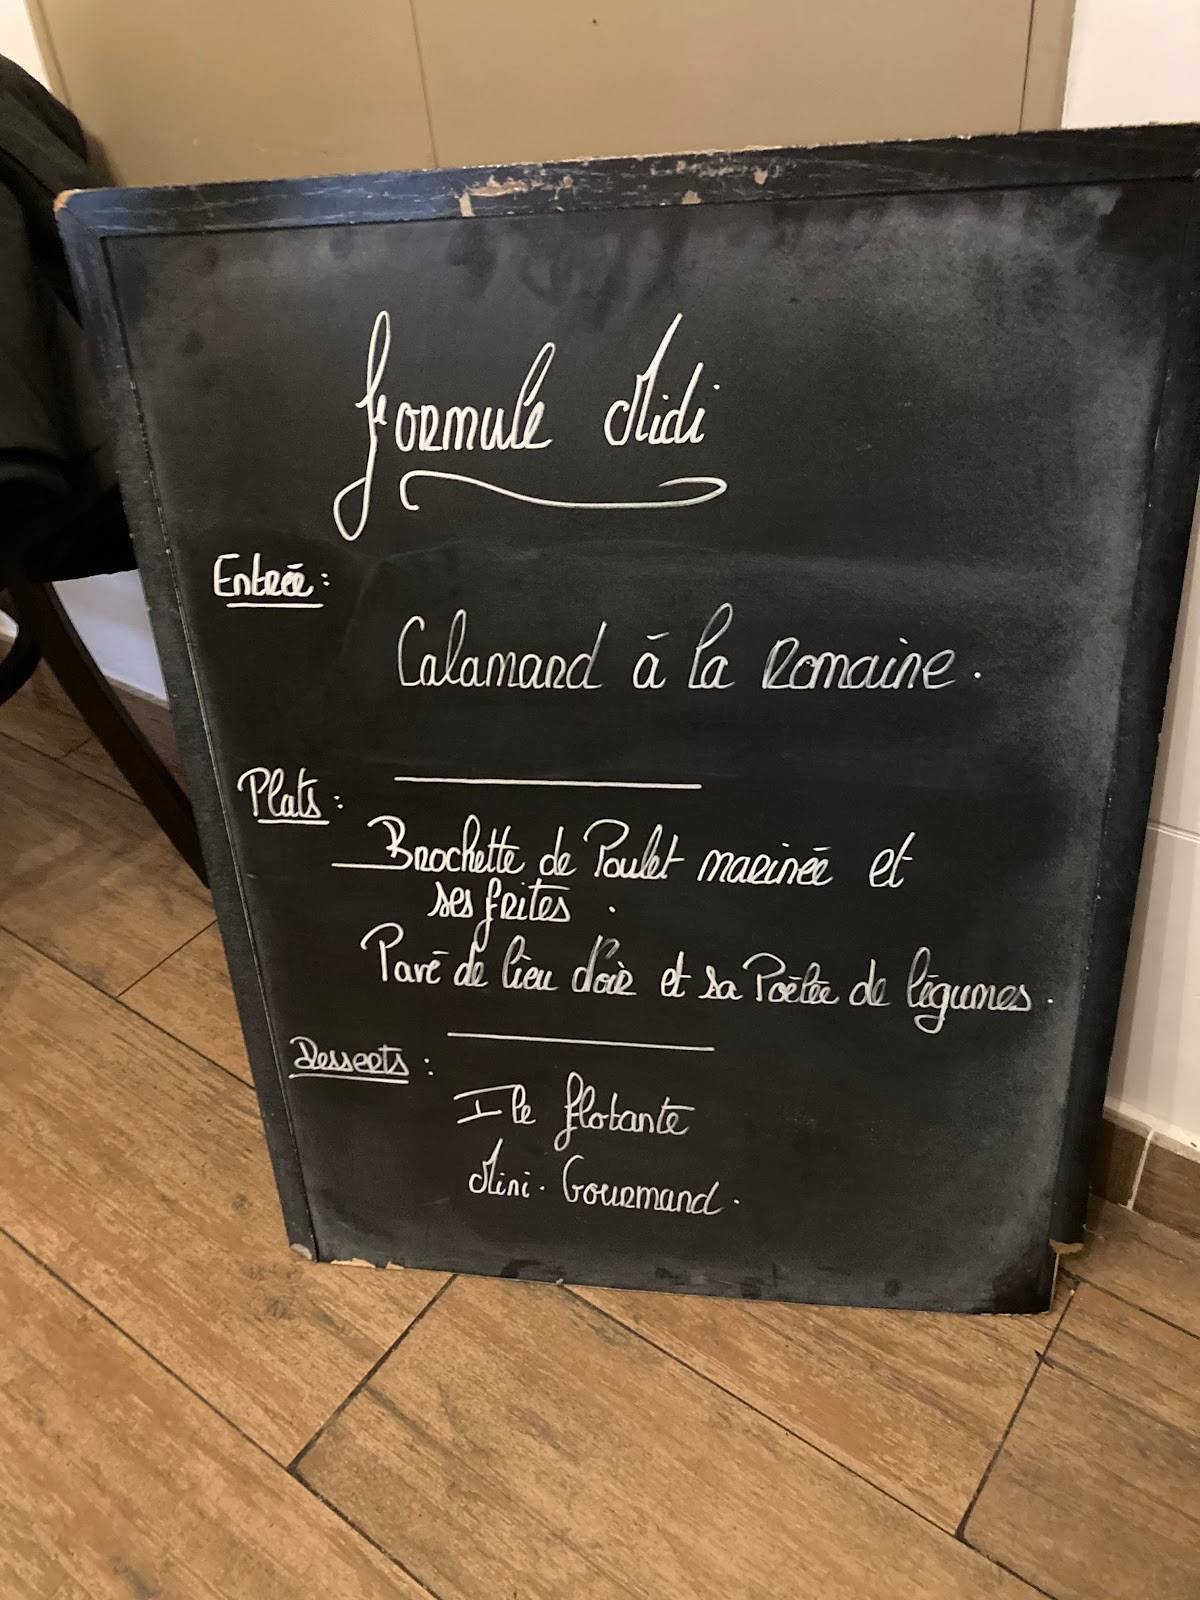 Formule Midi
Entrée :
Calamard à la Romaine.
Plats :
Brochette de Poulet marinée et
ses frites.
Pavé de lieu d'oir et sa Poêlée de légumes.
Desserts :
Ile flotante
Mini. Gourmand.